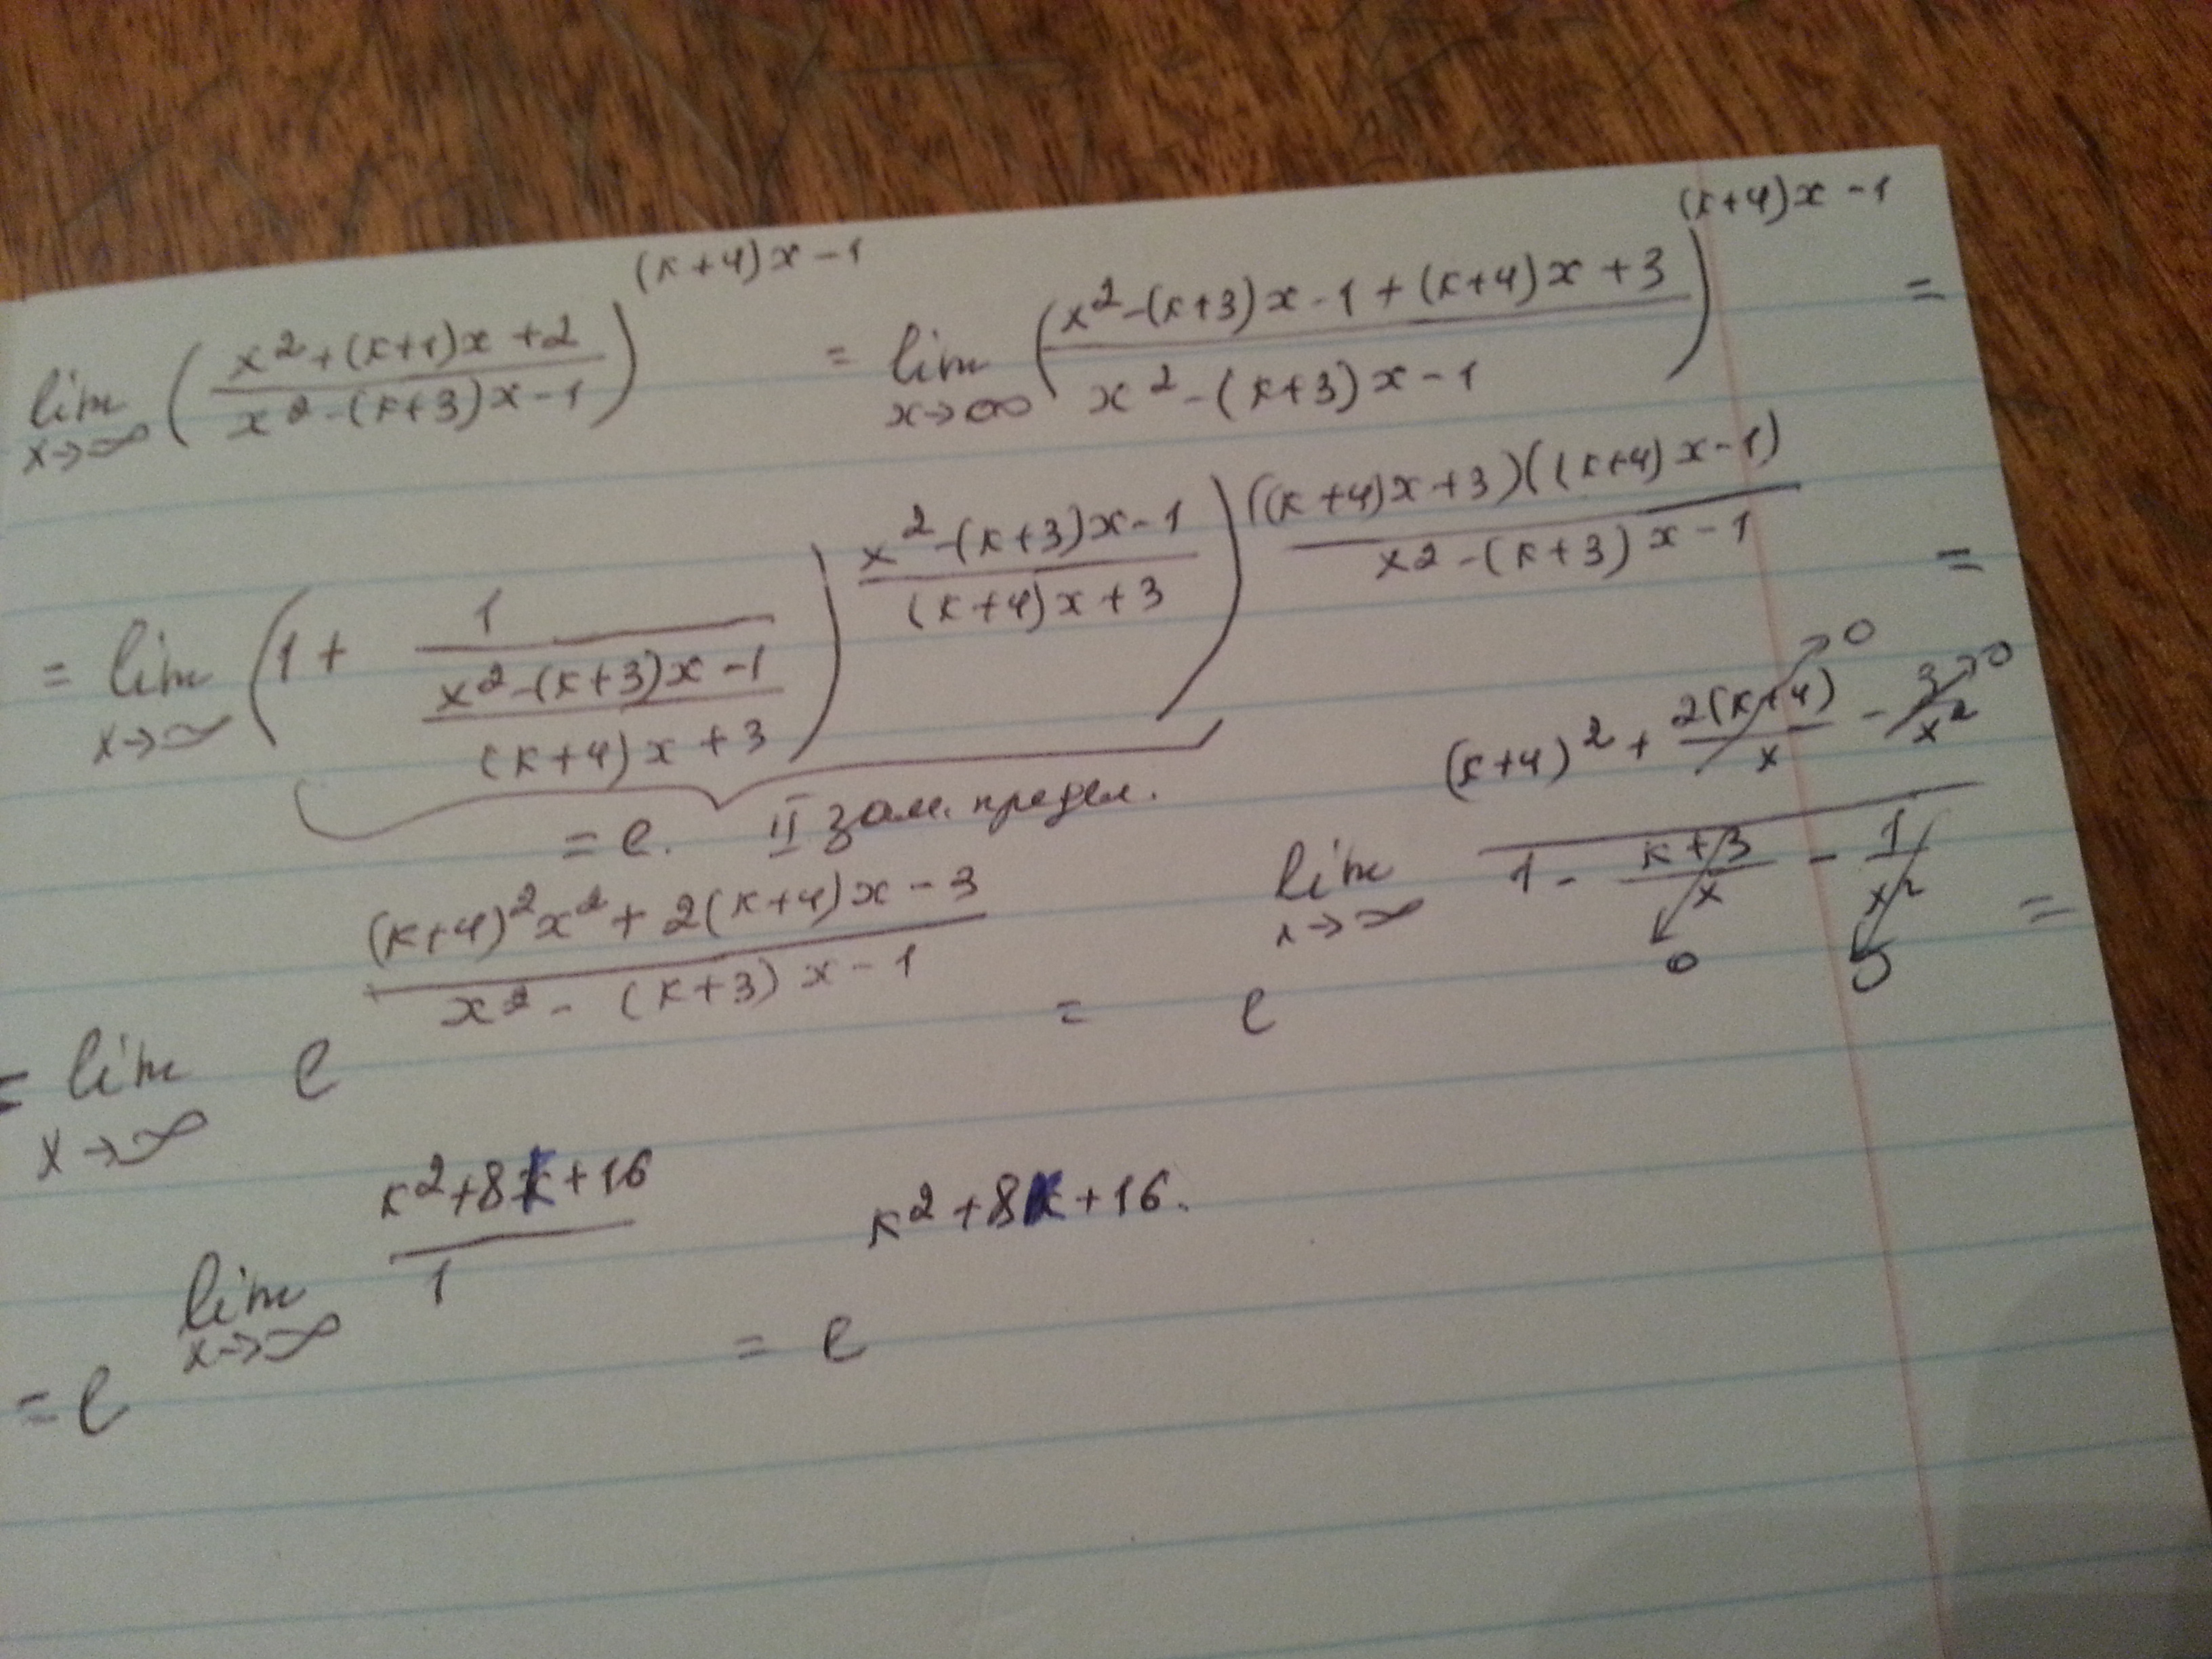 lim x→∞ ( (x² + (к+1)x + 2) / (x² - (к+3)x - 1) )^((к+4)x - 1) = lim x→∞ ( (x² - (к+3)x - 1 + (к+4)x + 3) / (x² - (к+3)x - 1) )^((к+4)x - 1) =
= lim x→∞ ( 1 + 1 / ( (x² - (к+3)x - 1) / ((к+4)x + 3) ) )^( (x² - (к+3)x - 1) / ((к+4)x + 3) ) )^( ((к+4)x + 3)((к+4)x - 1) / (x2 - (к+3)x - 1) ) =
= e. II зам. предел.
= lim x→∞ e^( ((к+4)²x² + 2(к+4)x - 3) / (x² - (к+3)x - 1) ) = e^( lim x→∞ ( (к+4)² + 2(к+4)/x →0 - 3/x² →0 ) / ( 1 - (к+3)/x →0 - 1/x² →0 ) ) =
= e^( lim x→∞ (к² + 8к + 16) / 1 ) = e^( к² + 8к + 16. )